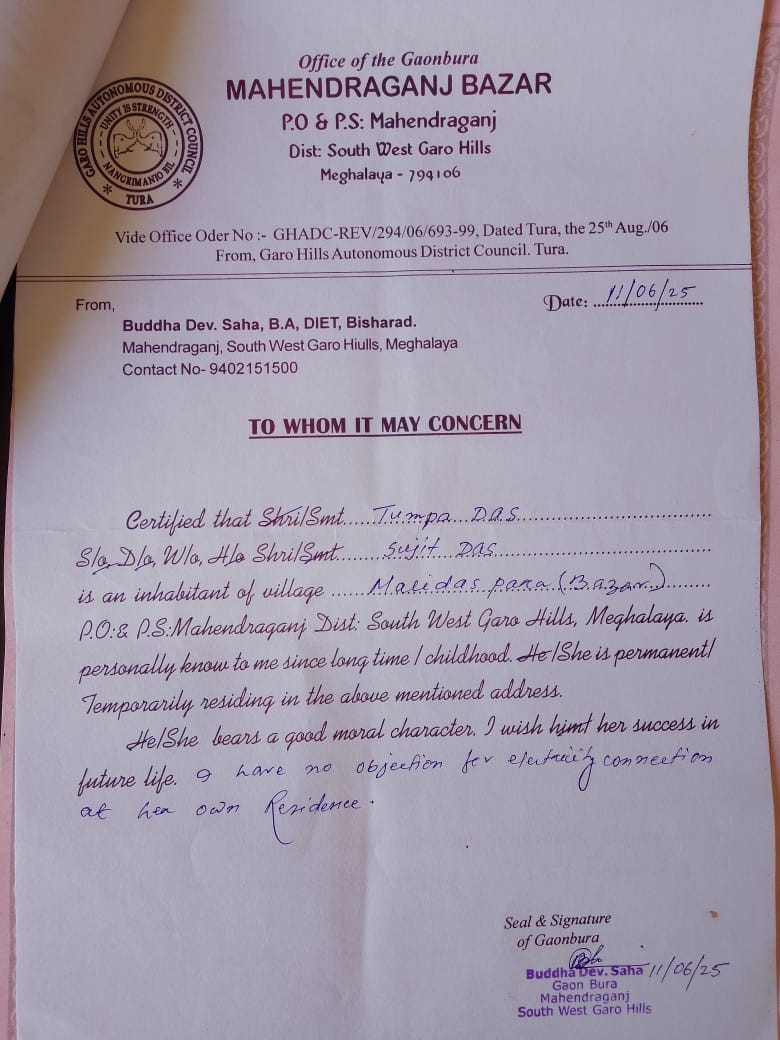 Office of the Gaonbura
MAHENDRAGANJ BAZAR
P.O & P.S: Mahendraganj
Dist: South West Garo Hills
Meghalaya - 794106
GARO HILLS AUTONOMOUS DISTRICT COUNCIL
UNITY IS STRENGTH
NANGRIMANIO BIL
* TURA *
Vide Office Oder No :- GHADC-REV/294/06/693-99, Dated Tura, the 25th Aug./06
From, Garo Hills Autonomous District Council. Tura.
From,
Date: 11/06/25
Buddha Dev. Saha, B.A, DIET, Bisharad.
Mahendraganj, South West Garo Hiulls, Meghalaya
Contact No- 9402151500
TO WHOM IT MAY CONCERN
Certified that Shri/Smt.... Tumpa Das
S/o, D/o, W/o, H/o Shri/Smt.... Sujit Das
is an inhabitant of village ..... Malidas para (Bazar)
P.O:& P.S:Mahendraganj Dist: South West Garo Hills, Meghalaya. is
personally know to me since long time / childhood. He/She is permanent/
Temporarily residing in the above mentioned address.
He/She bears a good moral character. I wish himt her success in
future life. I have no objection for electricity connection
at her own Residence.
Seal & Signature
of Gaonbura
Buddha Dev. Saha 11/06/25
Gaon Bura
Mahendraganj
South West Garo Hills